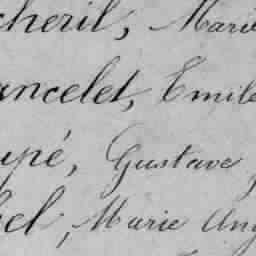 cheril, Marie
ancelet, Emile
upé, Gustave
bel, Marie Ang